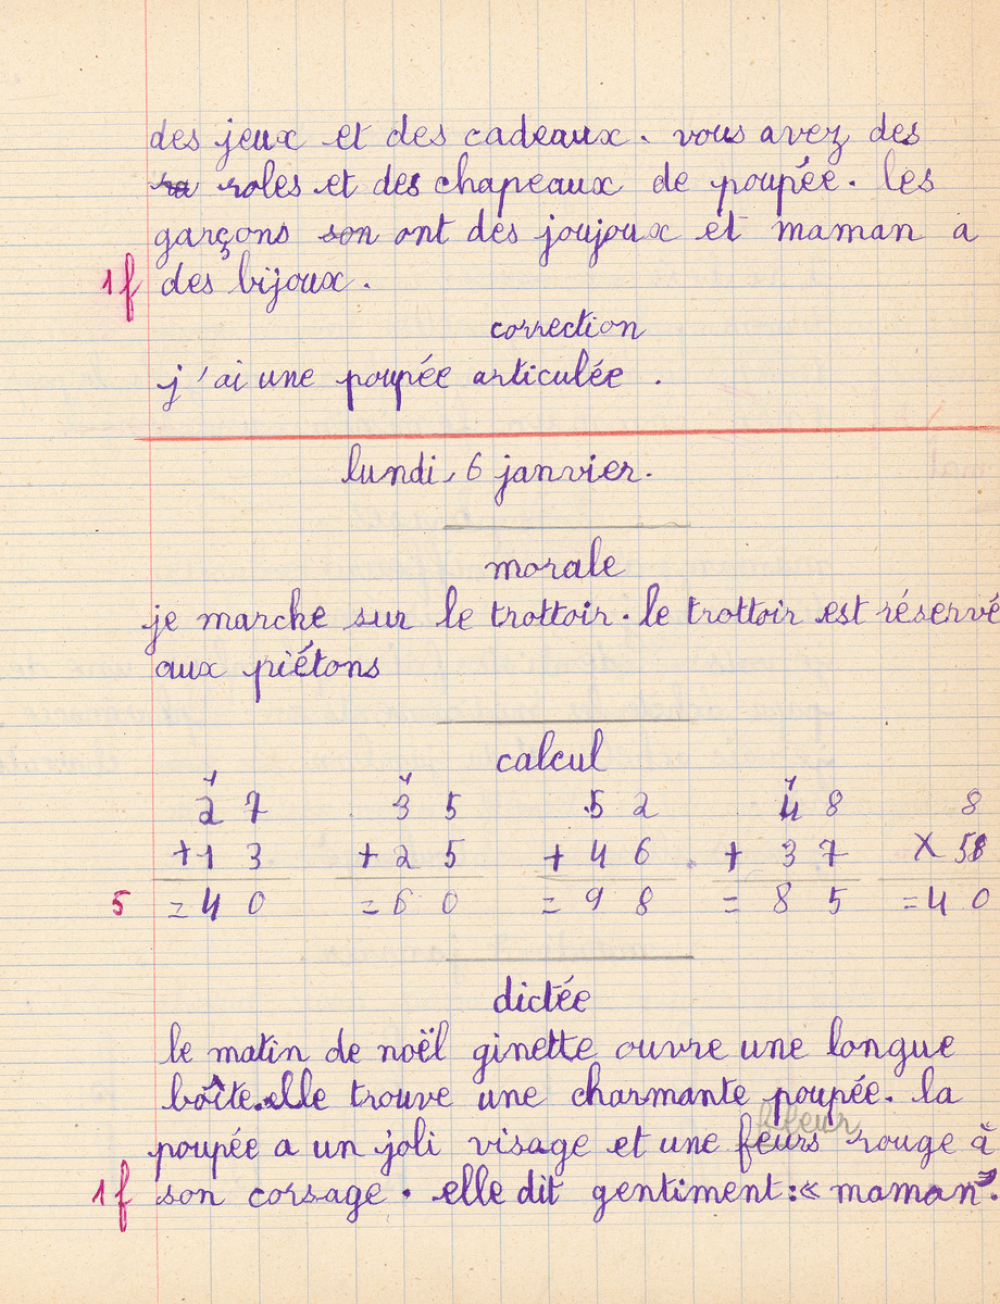 des jeux et des cadeaux. vous avez des
ra roles et des chapeaux de poupée. les
garçons son ont des joujoux et maman a
1f des bijoux.
correction
j'ai une poupée articulée.
lundi, 6 janvier.
morale
je marche sur le trottoir. le trottoir est réservé
aux piétons
calcul
1 1 1
27 35 52 48 8
+13 +25 +46 +37 X 5
5 =40 =60 =98 =85 =40
dictée
le matin de noël ginette ouvre une longue
boîte. elle trouve une charmante poupée. la
poupée a un joli visage et une feurs rouge à
1f son corsage. elle dit gentiment: « maman ».